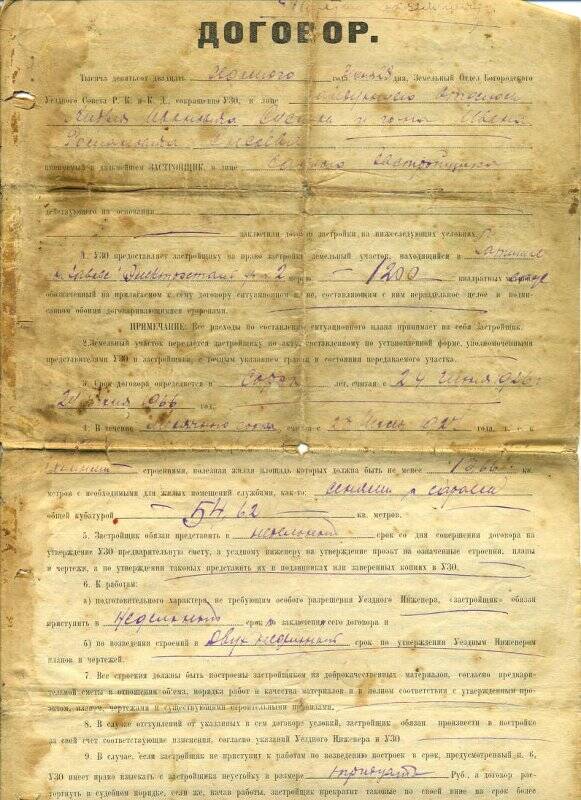 ДОГОВОР.
Тысяча девятьсот двадцать года дня, Земельный Отдел Богородского
Уездного Совета Р. К. и К. Д., сокращенно УЗО, в лице
Ивана
именуемый в дальнейшем ЗАСТРОЙЩИК, в лице самого застройщика
действующего на основании
заключили договор застройки на нижеследующих условиях
1. УЗО предоставляет застройщику на право застройки земельный участок, находящийся в
Электростали № 2 мерою — 1200 квадратных
обозначенный на прилагаемом к сему договору ситуационном плане, составляющим с ним нераздельное целое и подпи-
санном обоими договаривающимися сторонами.
ПРИМЕЧАНИЕ: Все расходы по составлению ситуационного плана принимает на себя застройщик.
2. Земельный участок передается застройщику по акту, составленному по установленной форме, уполномоченными
представителями УЗО и застройщика, с точным указанием границ и состояния передаваемого участка.
3. Срок договора определяется в сорок лет, считая с 24 июня 1926 г.
24 июня 1966 год
4. В течение месячного срока, считая с года
строениями, полезная жилая площадь которых должна быть не менее кв.
метров с необходимыми для жилых помещений службами, как-то: сенями и сараем
общей кубатурой — 54,62 кв. метров.
5. Застройщик обязан представить в недельный срок со дня совершения договора на
утверждение УЗО предварительную смету, а уездному инженеру на утверждение проэкт на означенные строения, планы
и чертежи, а по утверждении таковых представить их в подлинниках или заверенных копиях в УЗО.
6. К работам:
а) подготовительного характера, не требующим особого разрешения Уездного Инженера, «застройщик» обязан
приступить в недельный срок по заключении сего договора и
б) по возведении строений в двух недельный срок по утверждении Уездным Инженером
планов и чертежей.
7. Все строения должны быть построены застройщиком из доброкачественных материалов, согласно предвари-
тельной сметы в отношении об'ема, порядка работ и качества материалов и в полном соответствии с утвержденным про-
эктом, планом, чертежами и существующими строительными правилами.
8. В случае отступлений от указанных в сем договоре условий, застройщик обязан произвести в постройке
за свой счет соответствующие изменения, согласно указаний Уездного Инженера и УЗО.
9. В случае, если застройщик не приступит к работам по возведению построек в срок, предусмотренный п. 6,
УЗО имеет право взыскать с застройщика неустойку в размере тридцать Руб., а договор рас-
торгнуть в судебном порядке, если же, начав работы, застройщик прекратит таковые по своей вине на срок более